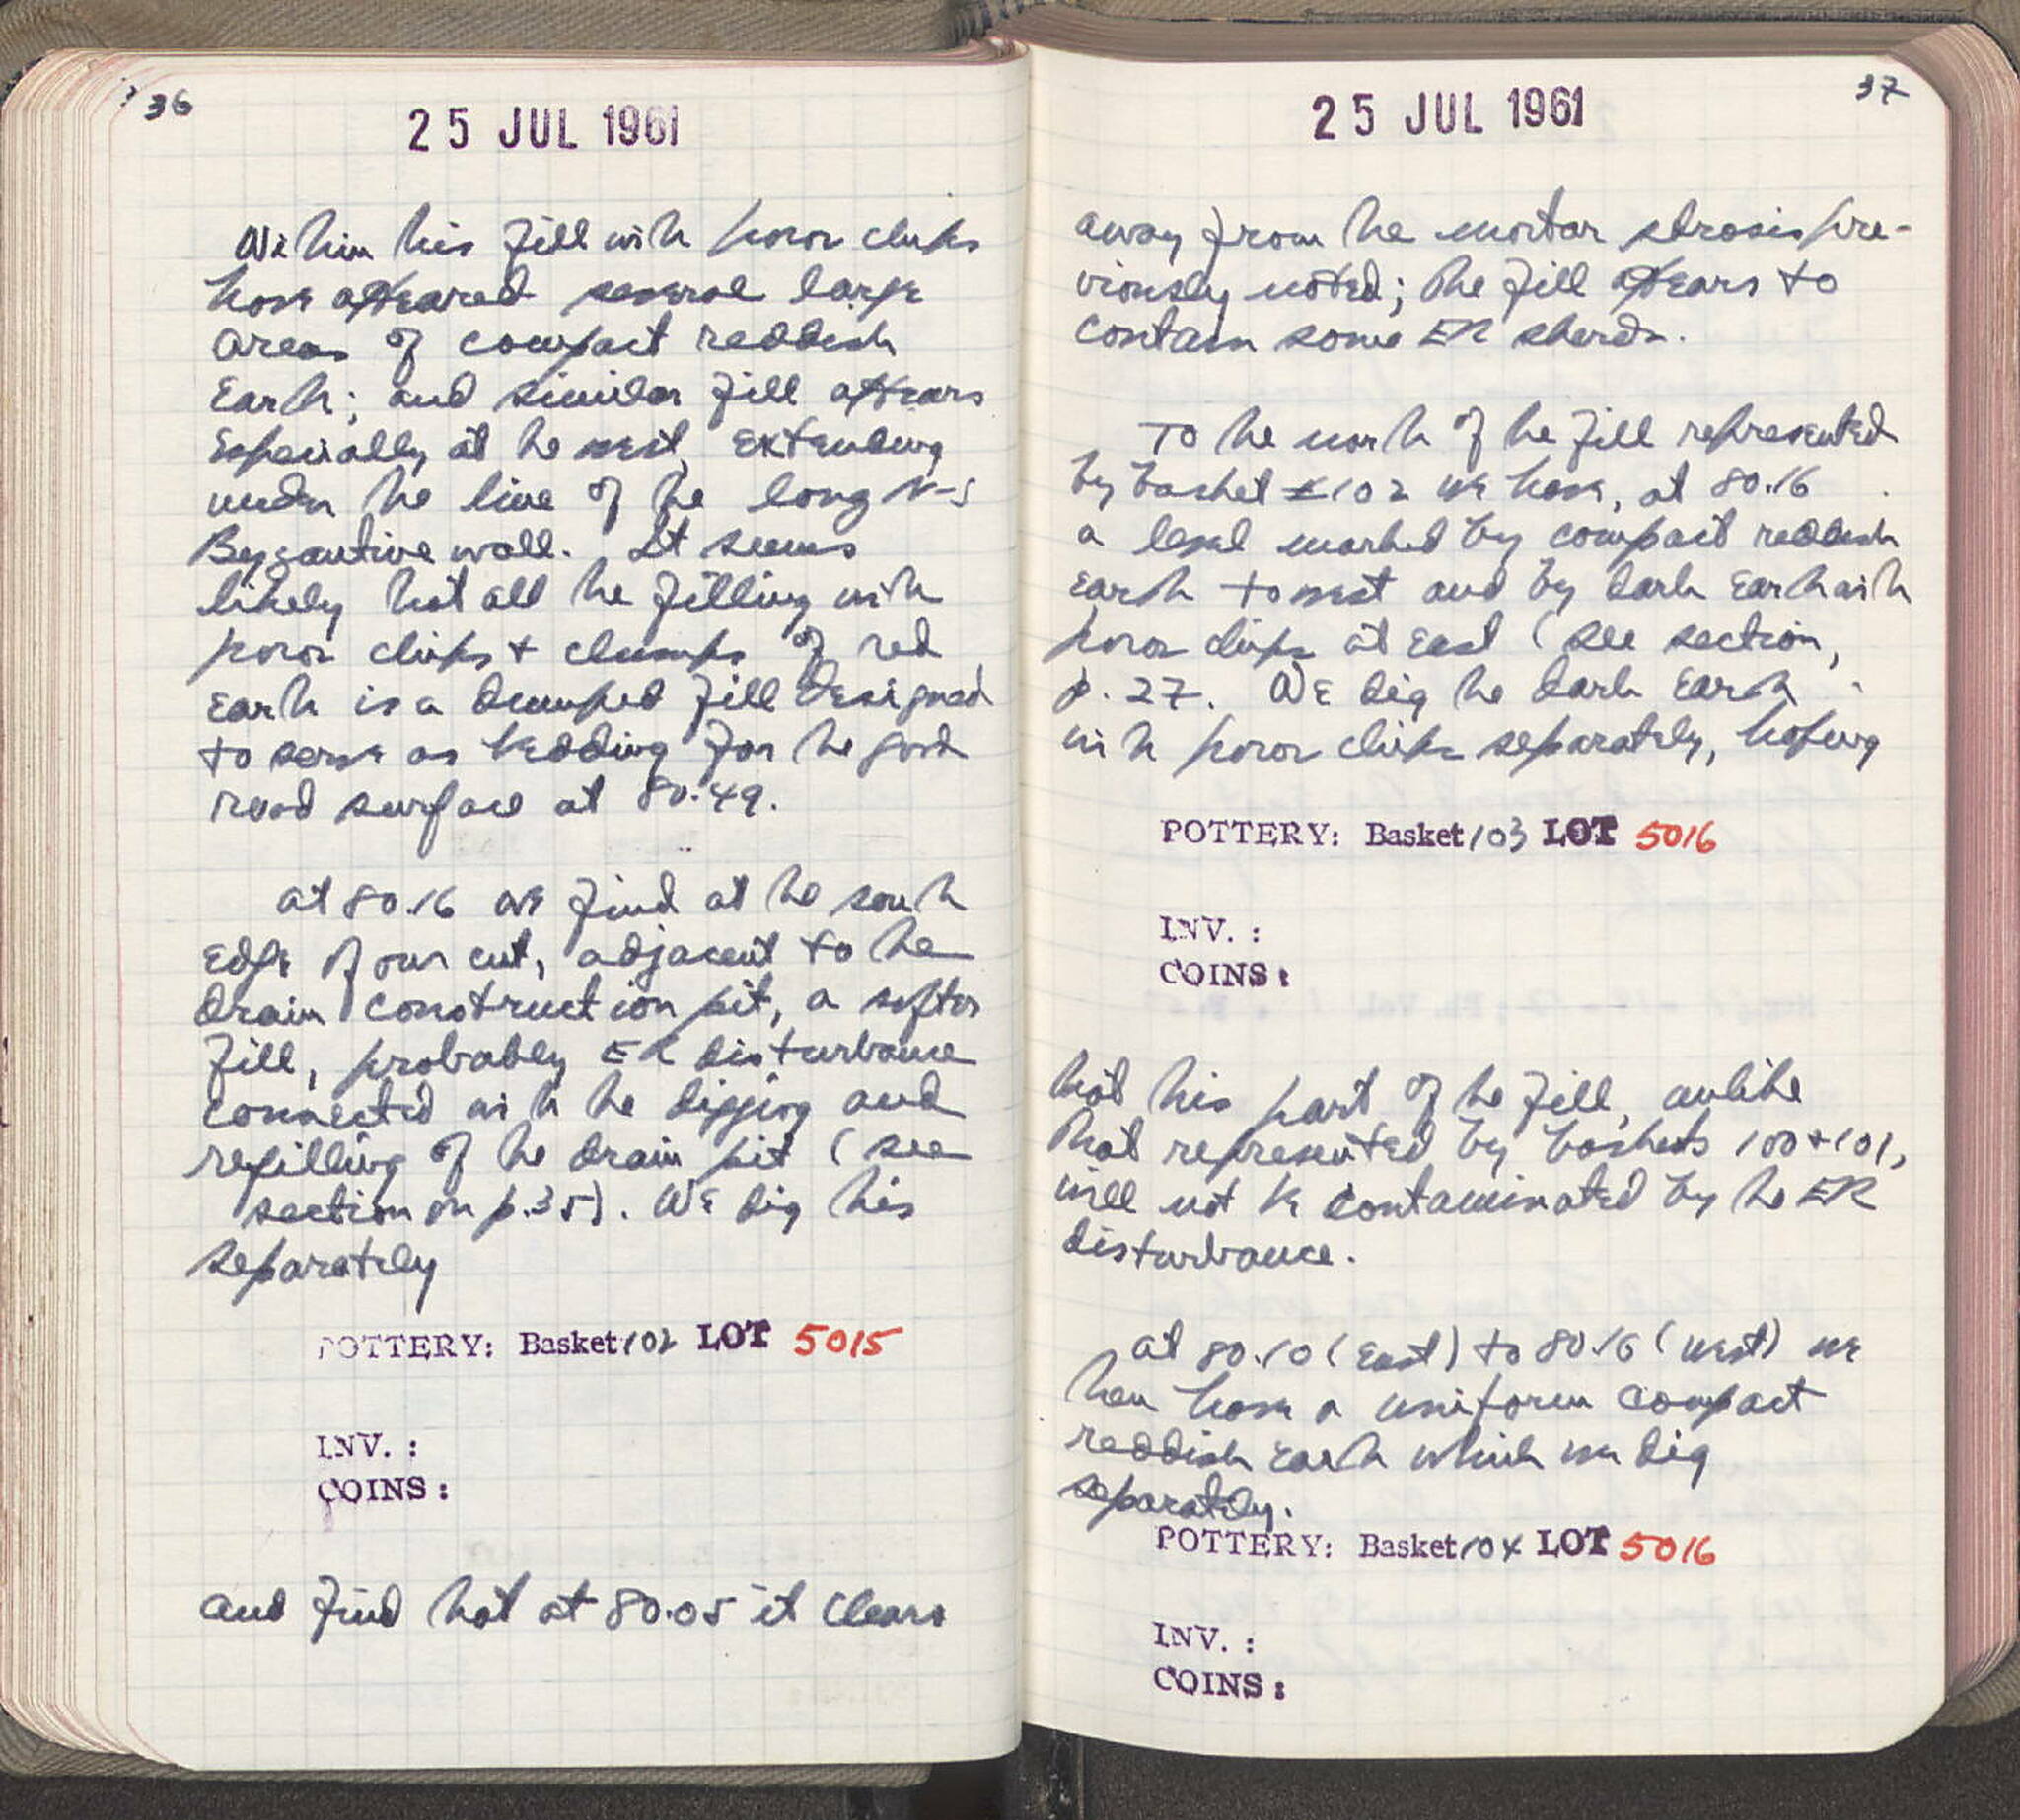 36
25 JUL 1961
Within this fill with poros chips
have appeared several large
areas of compact reddish
earth; and similar fill appears
especially at the west, extending
under the line of the long N-S
Byzantine wall. It seems
likely that all the filling with
poros chips + clumps of red
earth is a dumped fill designed
to serve as bedding for the good
road surface at 80.49.
at 80.16 we find at the south
edge of our cut, adjacent to the
drain construction pit, a softer
fill, probably ER disturbance
connected with the digging and
refilling of the drain pit (see
section on p.35). We dig this
separately
POTTERY: Basket 102 LOT 5015
INV. :
COINS :
and find that at 80.05 it clears
37
25 JUL 1961
away from the mortar strosis pre-
viously noted; the fill appears to
contain some ER sherds.
To the north of the fill represented
by basket 102 we have, at 80.16
a level marked by compact reddish
earth to west and by dark earth with
poros chips at east (see section,
p. 27. We dig the dark earth
with poros chips separately, hoping
POTTERY: Basket 103 LOT 5016
INV. :
COINS :
that this part of the fill, unlike
that represented by baskets 100+101,
will not be contaminated by the ER
disturbance.
at 80.10 (east) to 80.16 (west) we
then have a uniform compact
reddish earth which we dig
separately.
POTTERY: Basket 104 LOT 5016
INV. :
COINS :